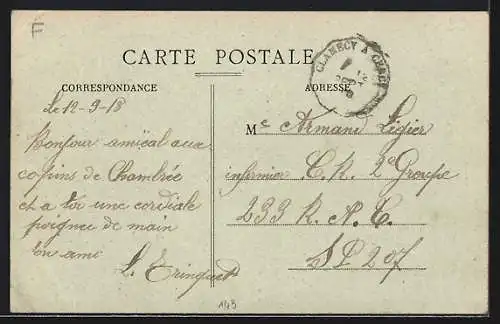 F
CARTE POSTALE
CLAMECY A CERCY
12
CORRESPONDANCE
ADRESSE
Le 12-9-18
Bonjour amical aux
copins de Chambrée
et a toi une cordiale
poignee de main
ton ami
Mr Armand Ligier
infirmier C.R. 2e Groupe
233 R.A.C.
SP 207
143